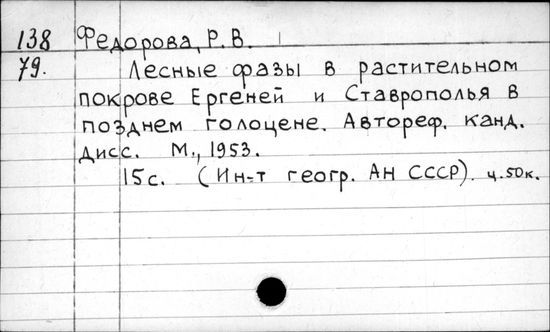 138 Федорова, Р. В.
79. Лесные фазы в растительном
покрове Ергеней и Ставрополья в
позднем голоцене. Автореф. канд.
дисс. М., 1953.
15 с. (Ин-т геогр. АН СССР). ц. 50 к.